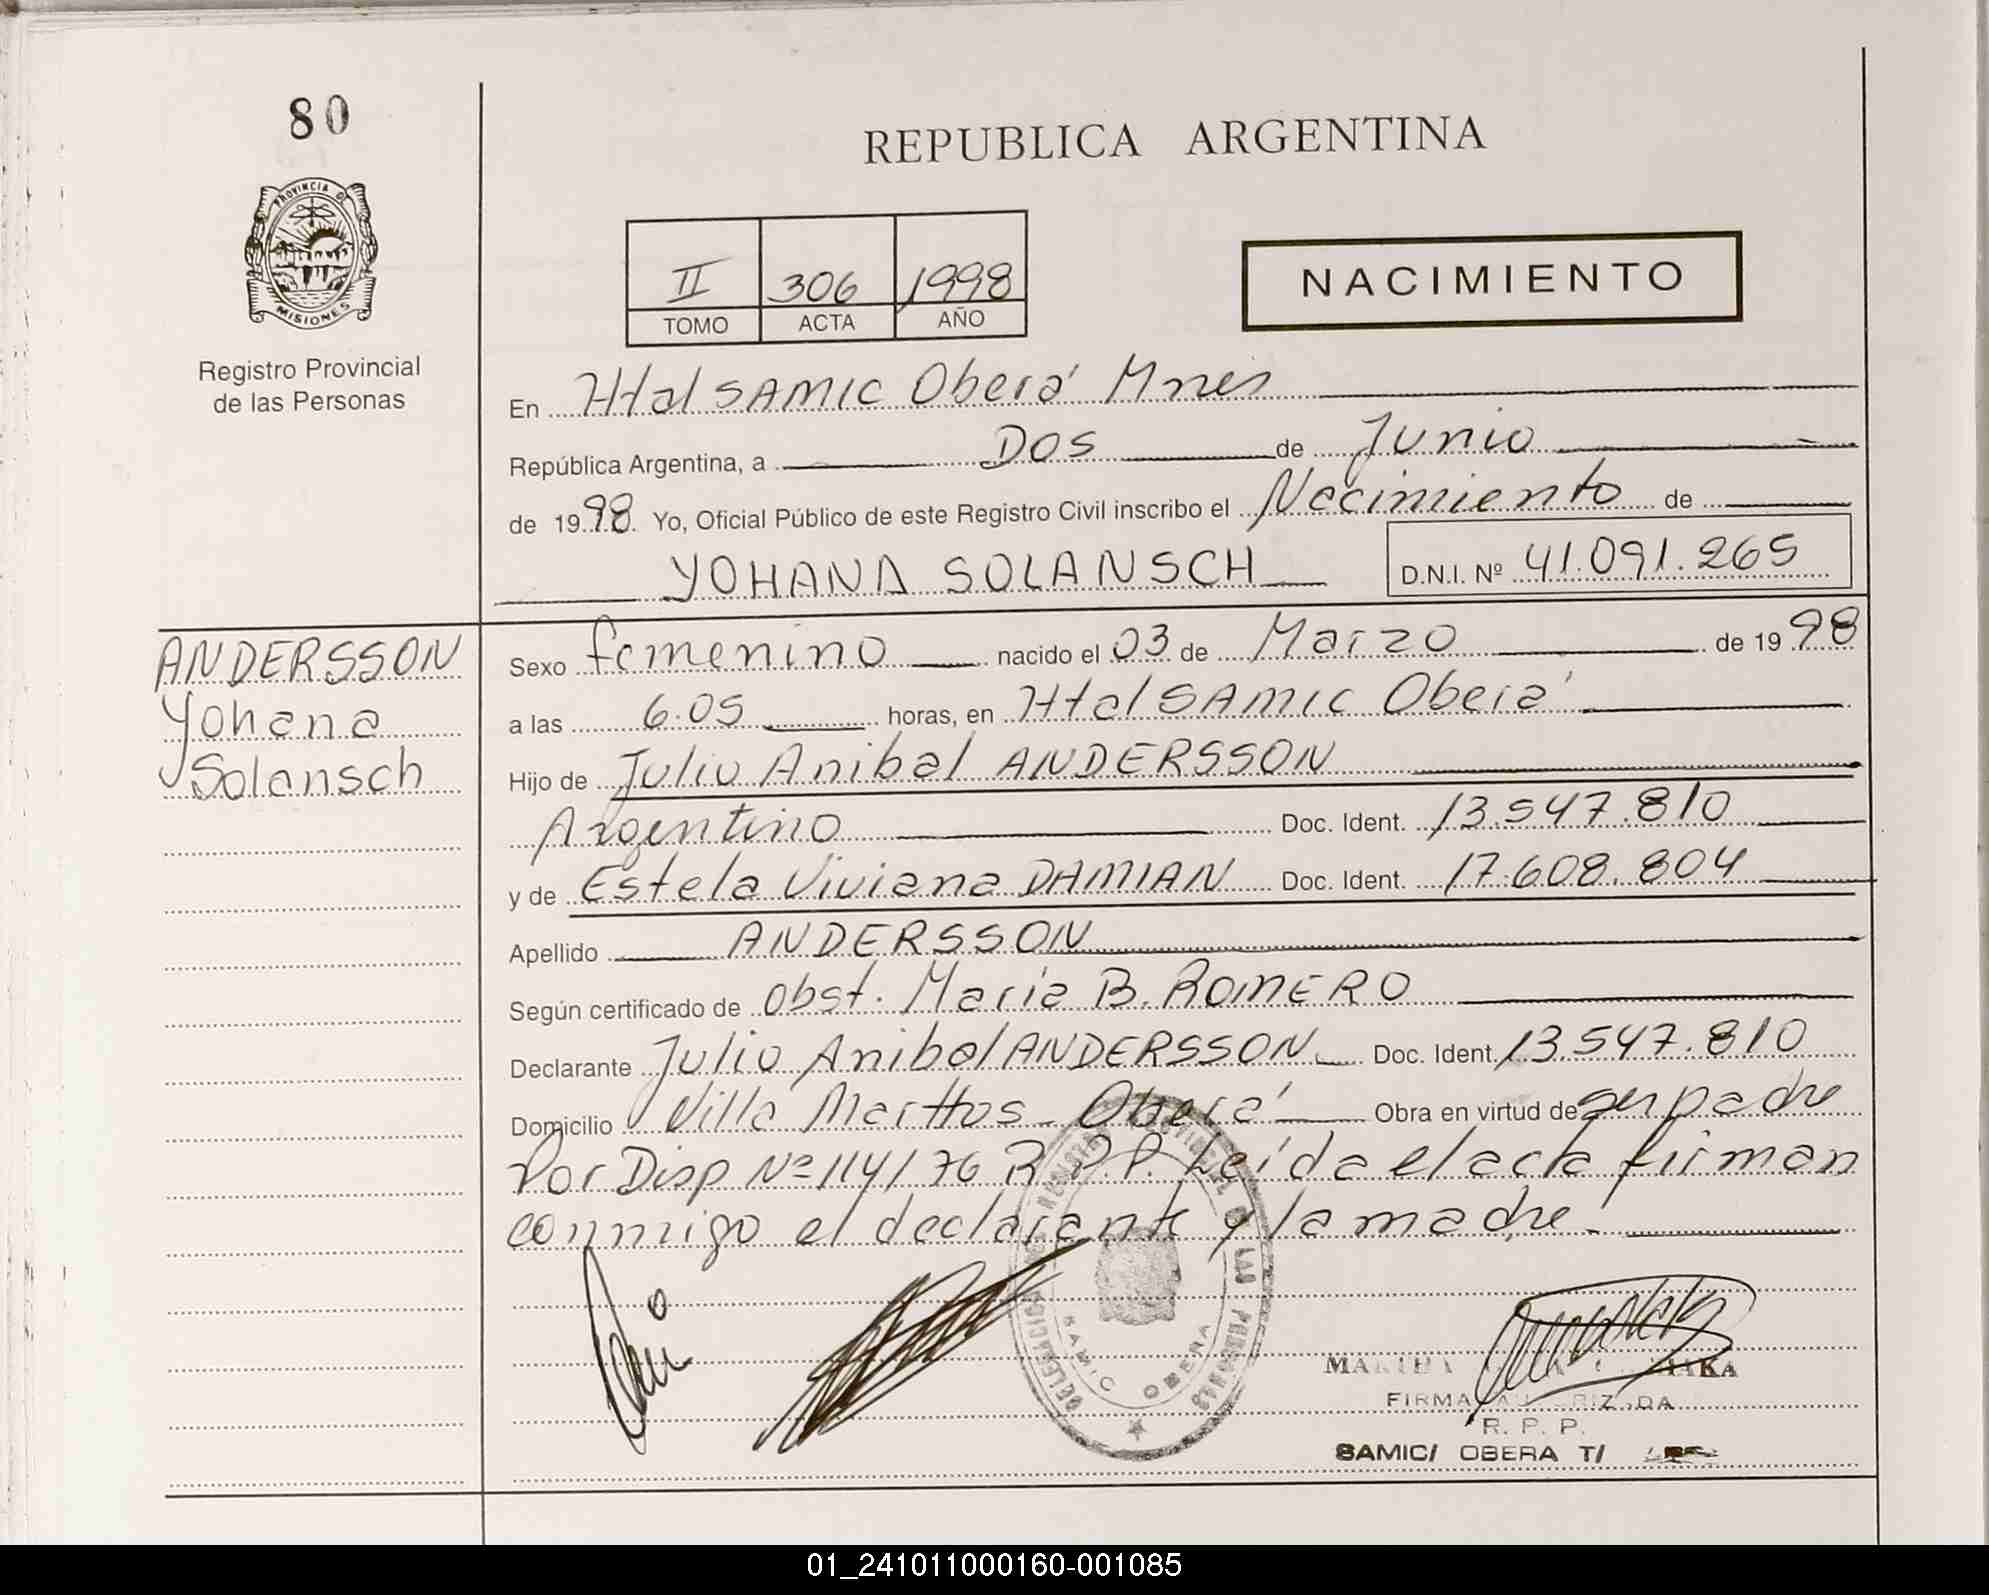 80
REPUBLICA ARGENTINA
PROVINCIA DE
MISIONES
Registro Provincial
de las Personas
II 306 1998
TOMO ACTA AÑO
NACIMIENTO
En Htal SAMIC Oberá Mnes
República Argentina, a DOS de Junio
de 1998. Yo, Oficial Público de este Registro Civil inscribo el Nacimiento de
YOHANA SOLANSCH D.N.I. Nº 41.091.265
ANDERSSON
Yohana
Solansch
Sexo femenino nacido el 03 de Marzo de 1998
a las 6.05 horas, en Htal SAMIC Oberá
Hijo de Julio Anibal ANDERSSON
Argentino Doc. Ident. 13.547.810
y de Estela Viviana DAMIAN Doc. Ident. 17.608.804
Apellido ANDERSSON
Según certificado de obst. Maria B. ROMERO
Declarante Julio Anibal ANDERSSON Doc. Ident. 13.547.810
Domicilio Villa Marttos - Oberá Obra en virtud de ser padre
Por Disp Nº 114/76 R.P.P. Leída el acta firman
conmigo el declarante y la madre.
PROVINCIAL DE LAS PERSONAS
SAMIC OBERA
FIRMA
R. P. P.
SAMIC/ OBERA T/
01_241011000160-001085